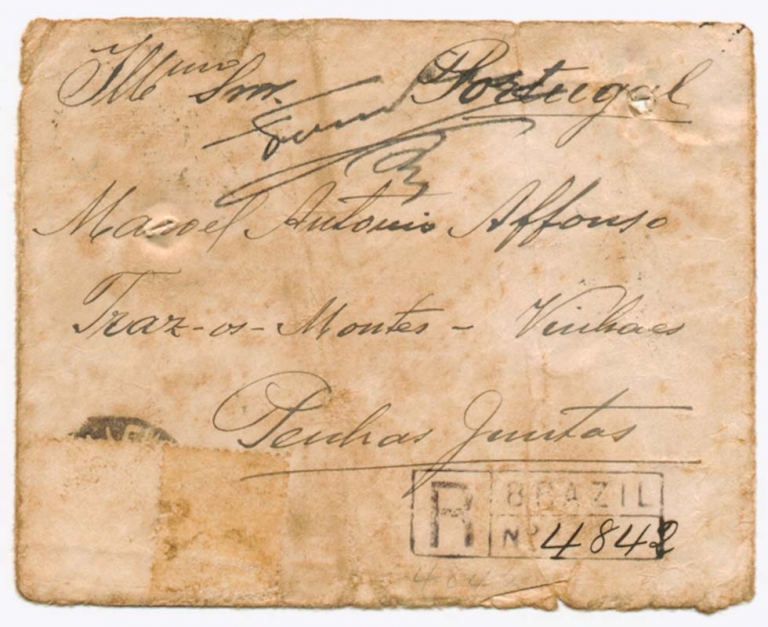 Illmo Snr. Portugal
Manoel Antonio Affonso
Traz-os-Montes - Vinhaes
Penhas Juntas
R BRAZIL
Nº 4842
4842